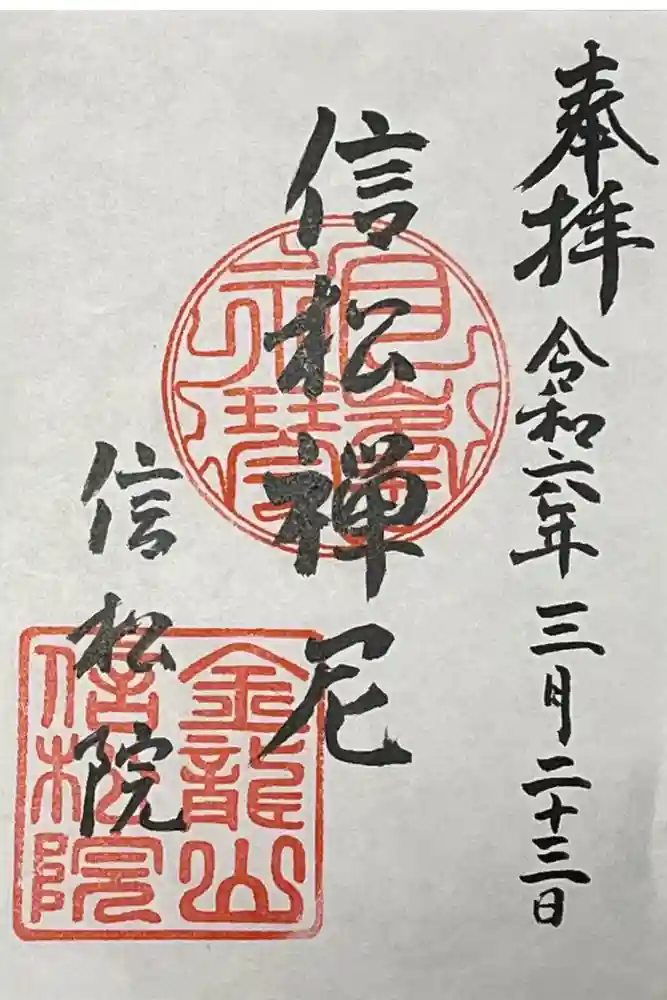 奉拝 令和六年 三月二十三日
信松禅尼
信松院
金龍山
信松院